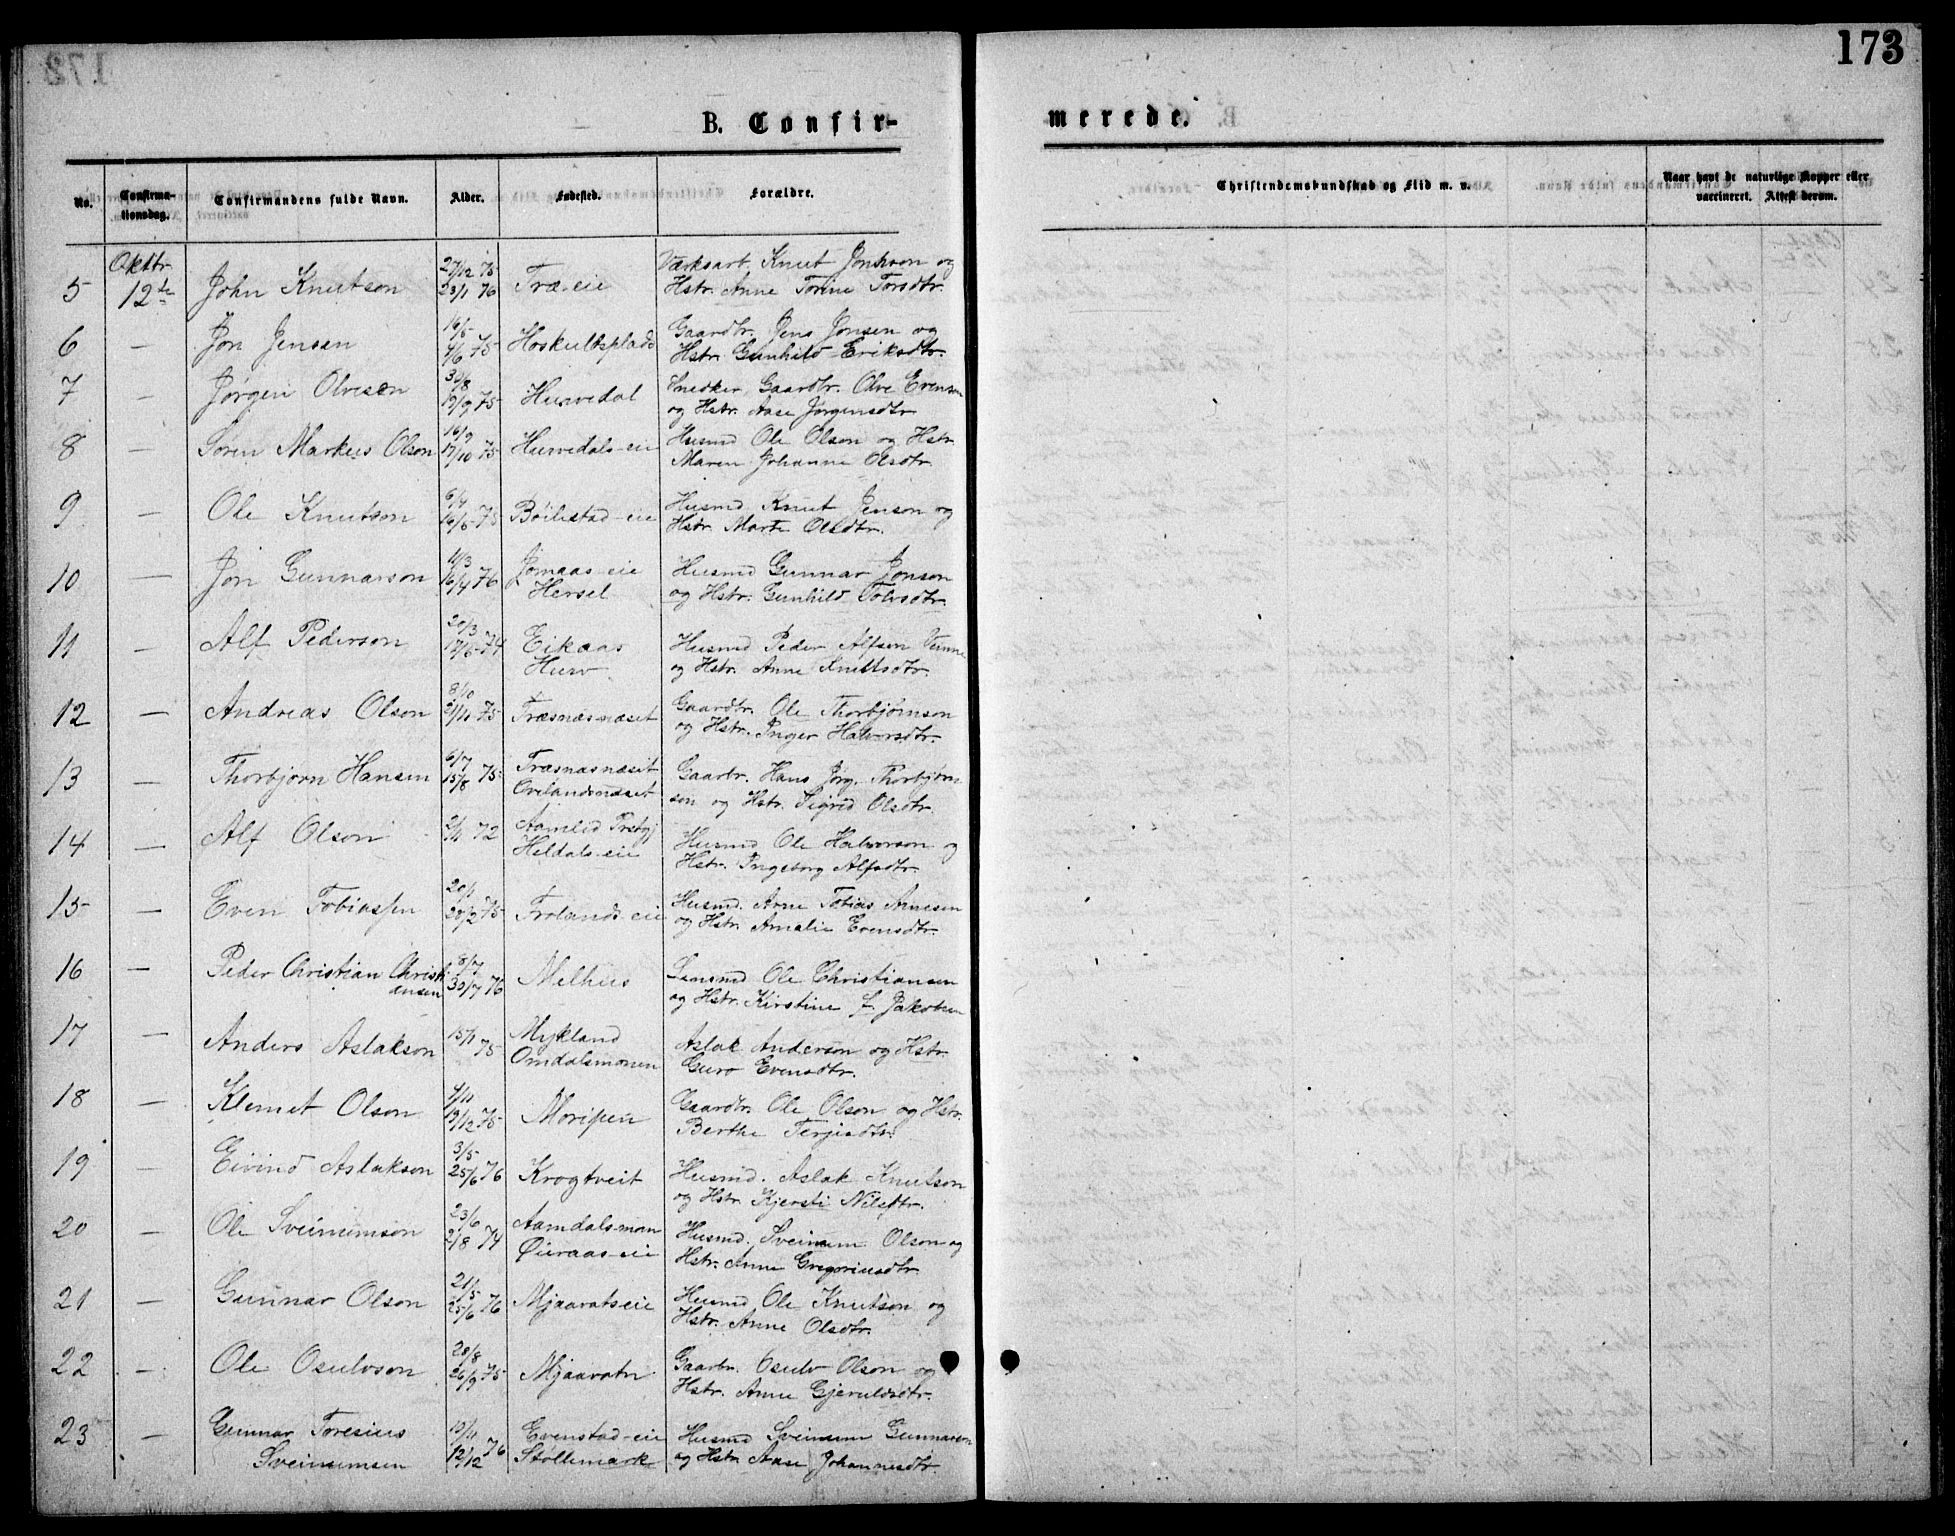 173
B. Confir-
merede.
No.
Confirma-
tionsdag.
Confirmandens fulde Navn.
Alder.
Fødested.
Forældre.
Christendomskundskab og Flid m. v.
Naar havt de naturlige Kopper eller
vaccineret. Attest derom.
Oktbr. 27/12 75 Værksarb. Knut Jonson og
5 12te John Knutson 23/1 76 Træ-eie Hstr. Anne Torine Torsdtr.
6 — Jon Jensen 16/5 Hoskuldsplads Gaardbr. Jens Jonsen og
4/6 75 Hstr. Gunhild Eriksdtr.
7 — Jørgen Olvesen 31/8 Husvedal Snedker, Gaardbr. Olve Evensen
19/9 75 og Hstr. Aase Jørgensdtr.
8 — Søren Markus Olson 16/9 Husvedals-eie Husmd Ole Olson og Hstr.
17/10 75 Maren Johanne Olsdtr.
9 — Ole Knutson 6/4 Bøilestad-eie Husmd Knut Jenson og
16/5 75 Hstr. Marte Olsdtr.
10 — Jon Gunnarson 11/3 Jomaas-eie Husmd Gunnar Jonson
16/4 76 Hersel og Hstr. Gunhild Tolvsdtr.
11 — Alf Pederson 20/3 Eikaas Husmd Peder Alfsen
17/5 74 Husv og Hstr. Anne Knutsdtr.
12 — Andreas Olson 8/10 Træsnæsnæset Gaardbr. Ole Thorbjørnson
21/11 75 og Hstr. Inger Halvorsdtr.
13 — Thorbjørn Hansen 6/7 Træsnæsnæset Gaardbr. Hans Jørg. Thorbjørn-
15/8 75 Ovelandsnæset son og Hstr. Sigrid Olsdtr.
14 — Alf Olson 2/11 72 Aamlid Prstgj Husmd Ole Halvorson og
Heldals-eie Hstr. Ingeborg Alfsdtr.
15 — Even Tobiassen 20/1 Frolands-eie Husmd. Arne Tobias Arnesen
28/2 75 og Hstr. Amalie Evensdtr.
16 — Peder Christian Christi- 8/7 Melhus Lensmd Ole Christiansen
ansen 30/7 76 og Hstr. Kirstine f. Jakobsen
17 — Anders Aslakson 15/1 75 Mykland Aslak Anderson og Hstr.
Omdalsmonen Guro Evensdtr.
18 — Klemet Olson 4/11 Moripen Gaardbr. Ole Olson og Hstr.
19/12 75 Berthe Terjesdtr.
19 — Eivind Aslakson 3/5 Krogtveit Husmd. Aslak Knutson
25/6 76 og Hstr. Kjersti Nilsdtr.
20 — Ole Sveinumson 23/6 Aamdalsmon Husmd. Sveinum Olson og
2/8 74 Øieraas-eie Hstr. Anne Gregoriusdtr.
21 — Gunnar Olson 21/5 Mjaavatseie Husmd Ole Knutson og
25/6 76 Hstr. Anne Olsdtr.
22 — Ole Osulvson 28/8 Mjaavatn Gaardbr. Osulv Olson og
26/9 75 Hstr. Anne Gjeruldsdtr.
23 — Gunnar Toresius 19/11 Evenstad-eie Husmd Sveinum Gunnarson
Sveinumsen 12/12 76 Støllemark og Hstr. Aase Johannesdtr.